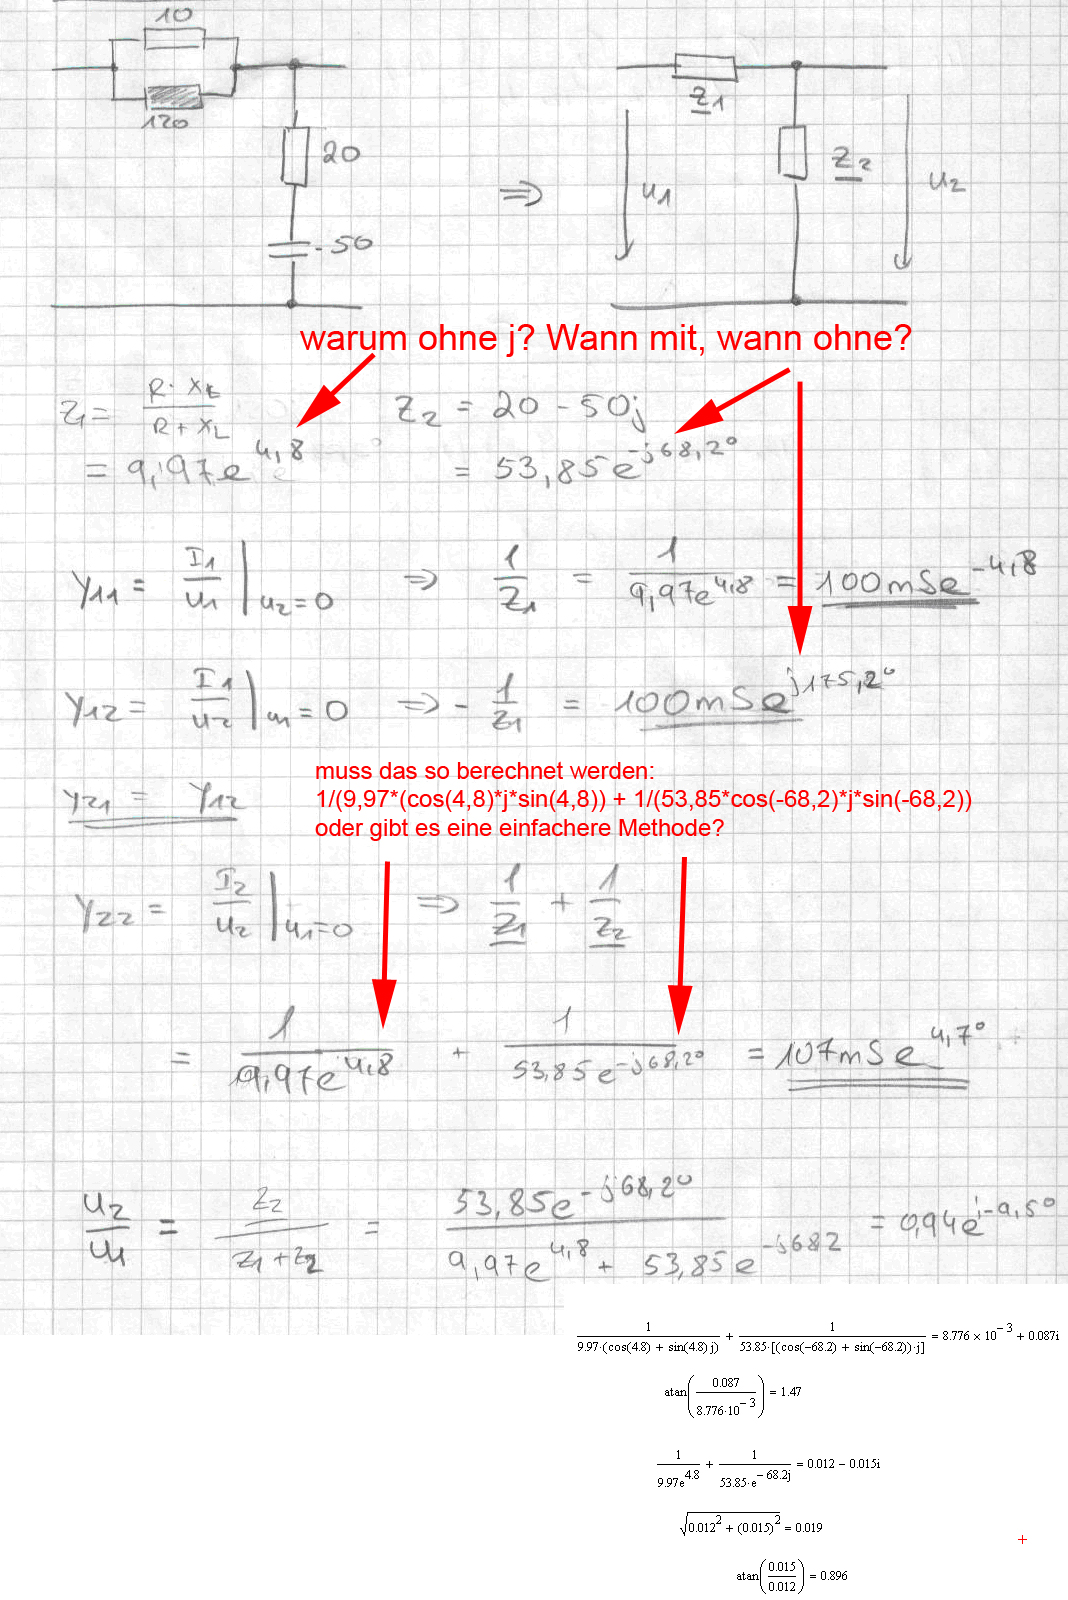 10
120
20
-50
⇒
Z1
Z2
u1
u2
warum ohne j? Wann mit, wann ohne?
Z1 = R · XL / R + XL
Z2 = 20 - 50j
= 9,97e^4,8
= 53,85e^-j68,2°
Y11 = I1/u1 | u2=0 ⇒ 1/Z1 = 1/9,97e^4,8 = 100mSe^-4,8
Y12 = I1/u2 | u1=0 ⇒ - 1/Z1 = 100mSe^j175,2°
muss das so berechnet werden:
1/(9,97*(cos(4,8)*j*sin(4,8)) + 1/(53,85*cos(-68,2)*j*sin(-68,2))
oder gibt es eine einfachere Methode?
Y21 = Y12
Y22 = I2/u2 | u1=0 ⇒ 1/Z1 + 1/Z2
= 1/9,97e^j4,8 + 1/53,85e^-j68,2° = 107mSe^4,7°
u2/u1 = Z2/Z1+Z2 = 53,85e^-j68,2° / 9,97e^4,8 + 53,85e^-j682 = 0,94e^j-9,5°
1/9.97·(cos(4.8) + sin(4.8)j) + 1/53.85·[(cos(-68.2) + sin(-68.2))·j] = 8.776 × 10^-3 + 0.087i
atan(0.087/8.776·10^-3) = 1.47
1/9.97e^4.8 + 1/53.85·e^-68.2j = 0.012 - 0.015i
√0.012^2 + (0.015)^2 = 0.019
+
atan(0.015/0.012) = 0.896